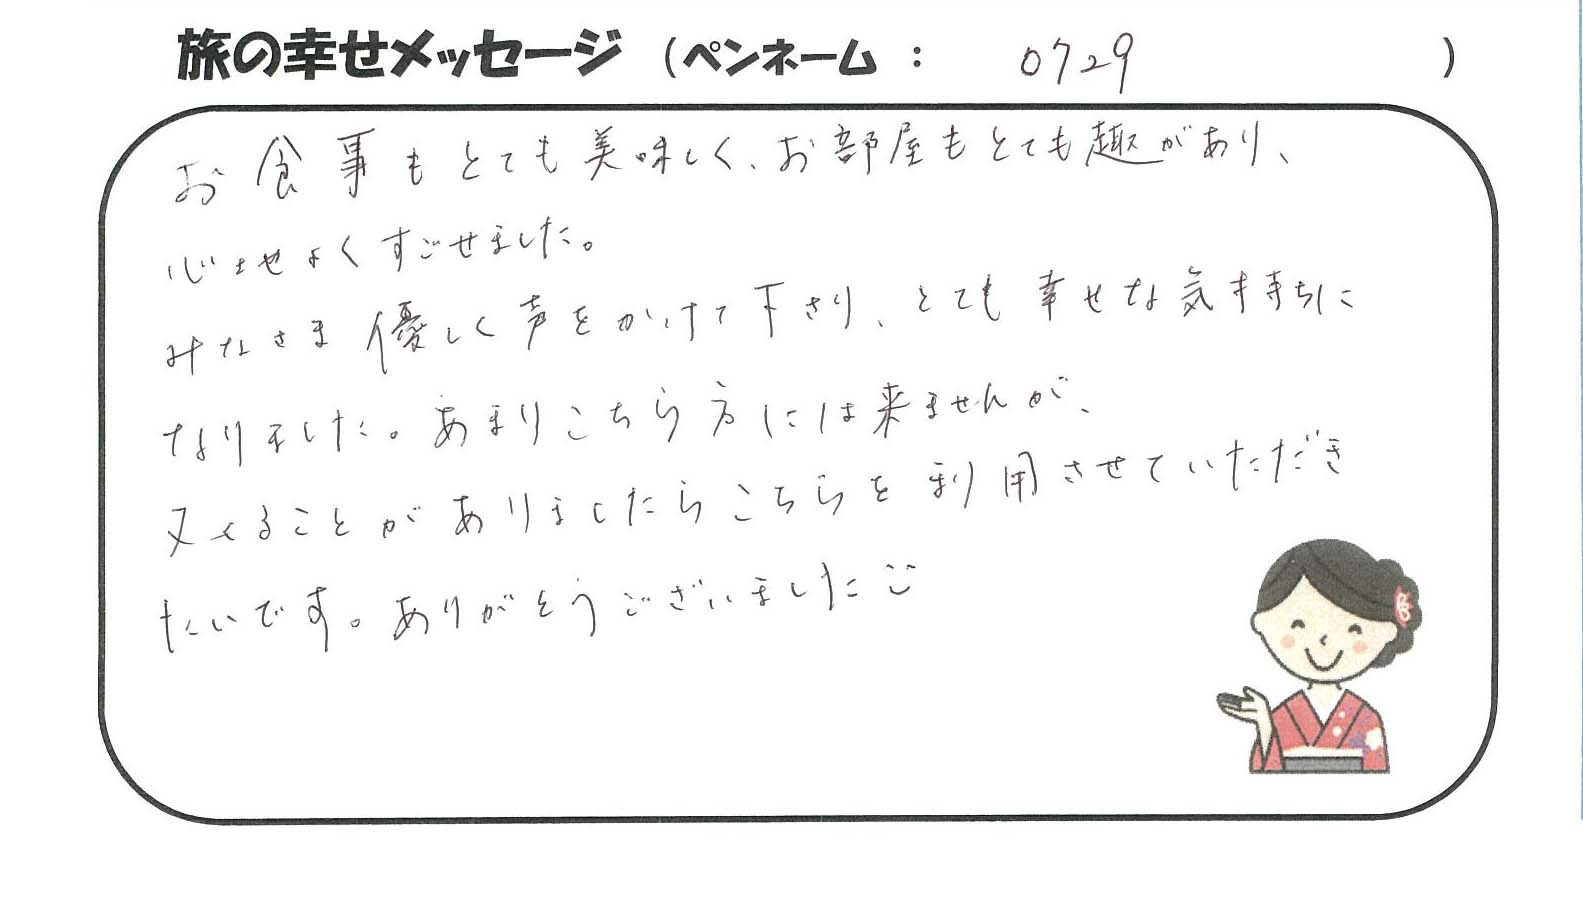 旅の幸せメッセージ (ペンネーム : 0729 )
お食事もとても美味しく、お部屋もとても趣があり、
心地よくすごせました。
みなさま優しく声をかけて下さり、とても幸せな気持ちに
なりました。あまりこちら方には来ませんが、
又くることがありましたらこちらを利用させていただき
たいです。ありがとうございました